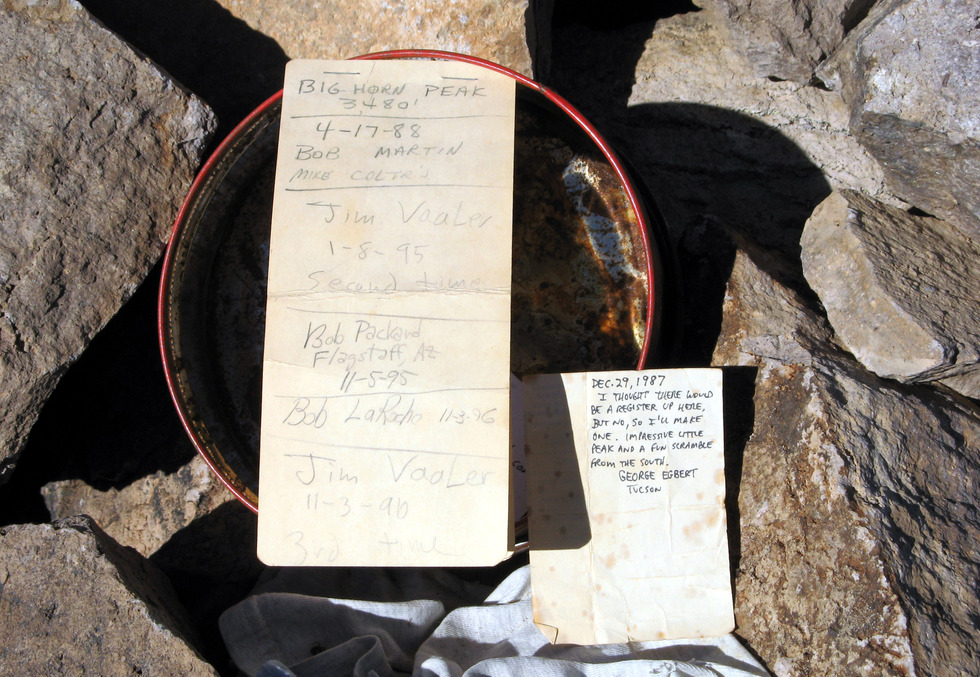 BIG HORN PEAK
3480'
4-17-88
BOB MARTIN
MIKE
Jim Vaaler
1-8-95
Second time
Bob Packard
Flagstaff, AZ
11-5-95
Bob 11-3-96
Jim Vaaler
11-3-96
3rd time
DEC. 29, 1987
I THOUGHT THERE WOULD
BE A REGISTER UP HERE,
BUT NO, SO I'LL MAKE
ONE. IMPRESSIVE LITTLE
PEAK AND A FUN SCRAMBLE
FROM THE SOUTH.
GEORGE EGBERT
TUCSON